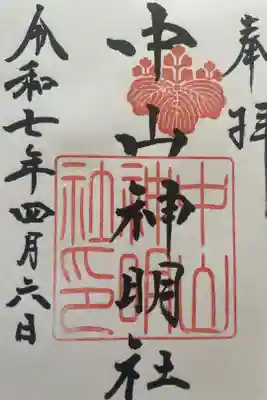 奉拝
中山神明社
中山
神明
社印
令和七年四月六日